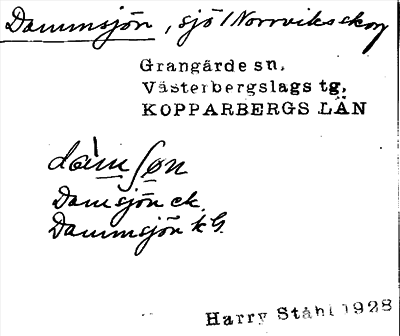 Dammsjön, sjö i Norrviks skog
Grangärde sn,
Västerbergslags tg,
KOPPARBERGS LÄN
dàmʃøn
Damsjön ek.
Dammsjön kG.
Harry Ståhl 1928